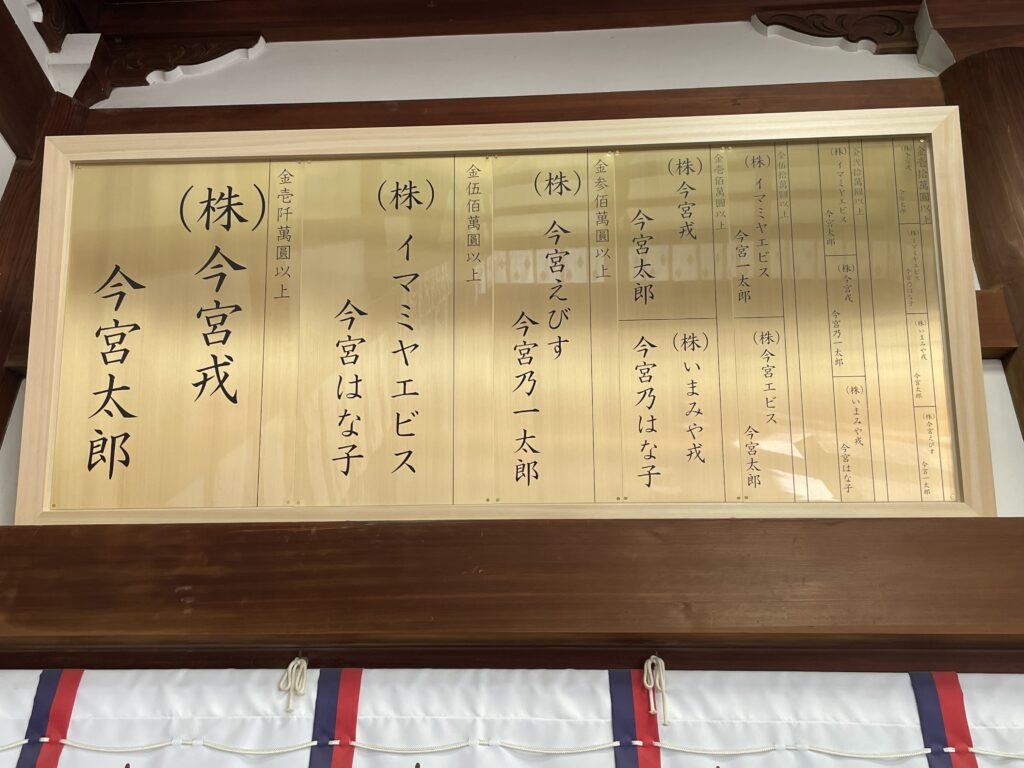 金壱拾萬圓以上
(株)イマミヤエビス
(株)いまみや戎
今宮太郎
(株)今宮えびす
今宮一太郎
金弐拾萬圓以上
(株)イマミヤエビス
今宮太郎
(株)今宮戎
今宮乃一太郎
(株)いまみや戎
今宮はな子
金伍拾萬圓以上
(株)イマミヤエビス
今宮一太郎
(株)今宮エビス
今宮太郎
金壱佰萬圓以上
(株)今宮戎
今宮太郎
(株)いまみや戎
今宮乃はな子
金参佰萬圓以上
(株)今宮えびす
今宮乃一太郎
金伍佰萬圓以上
(株)イマミヤエビス
今宮はな子
金壱阡萬圓以上
(株)今宮戎
今宮太郎